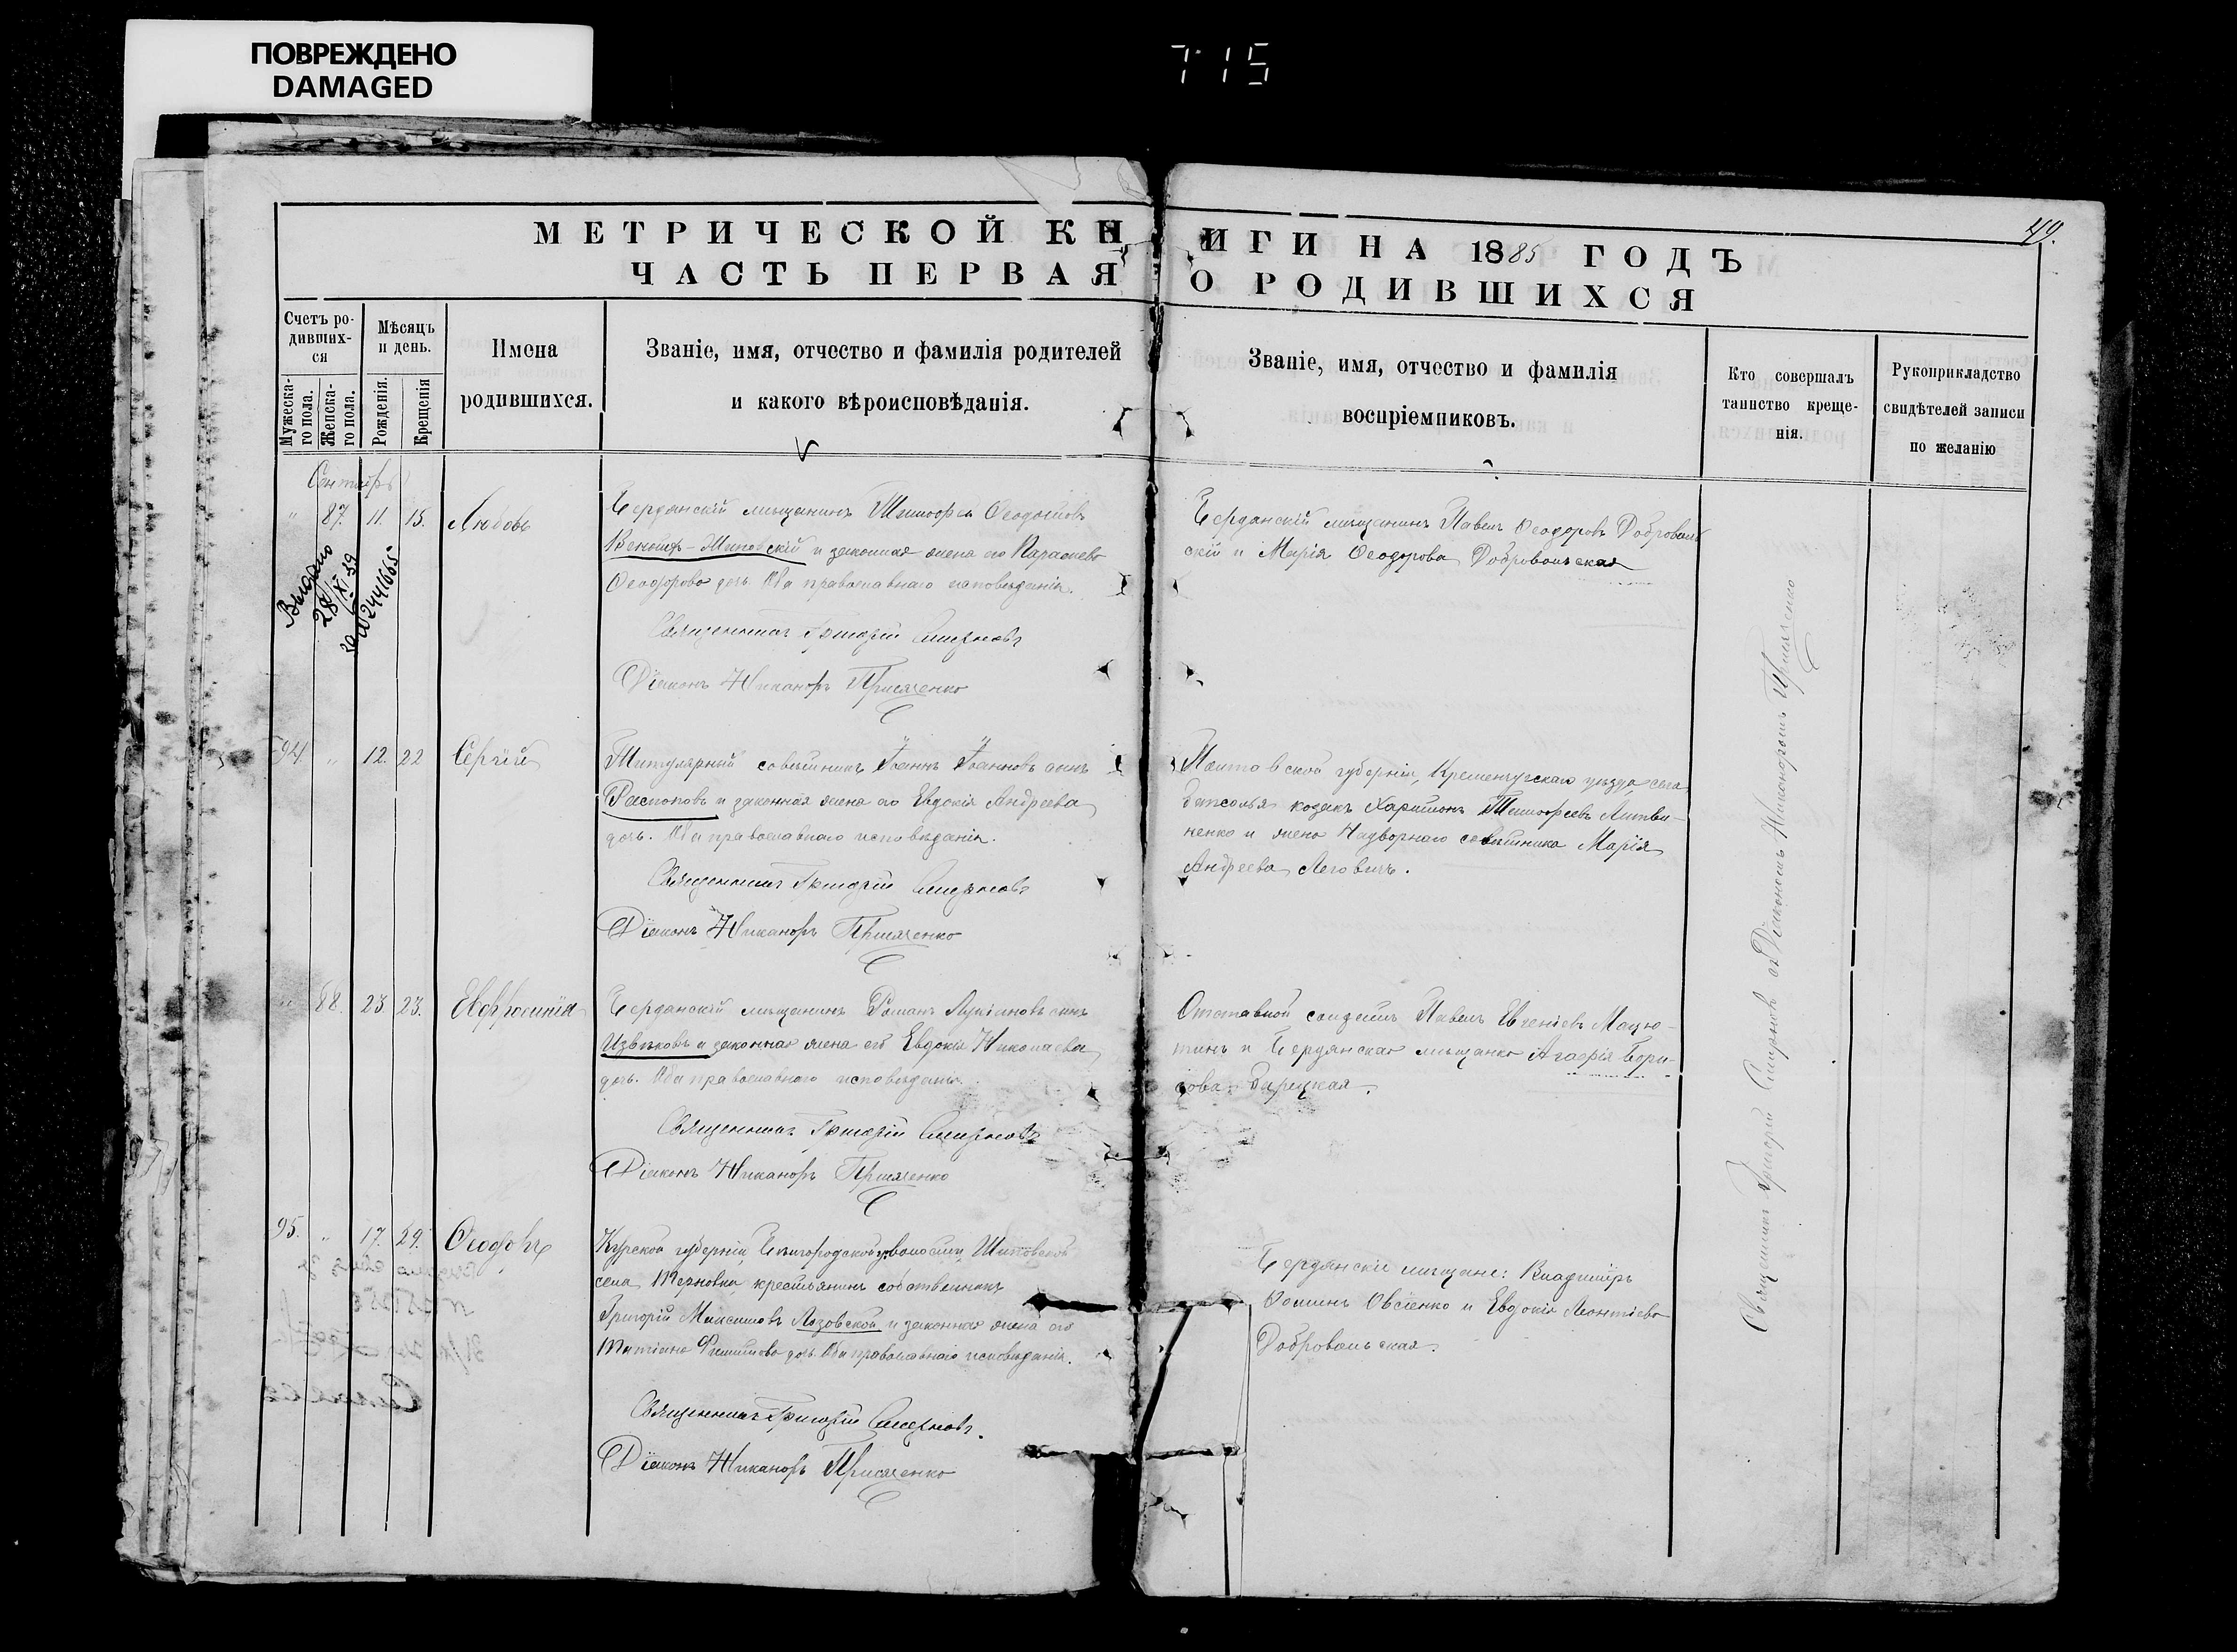 ПОВРЕЖДЕНО
DAMAGED
715
49.
МЕТРИЧЕСКОЙ КНИГИ НА 1885 ГОДЪ
ЧАСТЬ ПЕРВАЯ О РОДИВШИХСЯ
Счетъ ро-
дивших-
ся
Мужеска-
го пола.
Женска-
го пола.
Мѣсяцъ
и день.
Рожденія.
Крещенія
Имена
родившихся.
Званіе, имя, отчество и фамилія родителей
и какого вѣроисповѣданія.
Званіе, имя, отчество и фамилія
воспріемниковъ.
Кто совершалъ
таинство креще-
нія.
Рукоприкладство
свидѣтелей записи
по желанію
Сентябрь
" 87. 11. 15. Любовь
Выдано
28/XI 39
за № 2441665
Бердянскій мѣщанинъ Тимофей
и законная жена его Параскева
Ѳеодорова дочь. Оба православнаго исповѣданія.
Священникъ Григорій Смирновъ
Діаконъ Никаноръ Присяченко
Бердянскій мѣщанинъ Павелъ Ѳеодоровъ Доброволь
скій и Марія Ѳеодорова Добровольская
94 " 12. 22 Сергій
Титулярный совѣтникъ Іоаннъ Іоанновъ сынъ
Распоповъ и законная жена его Евдокія Андреева
дочь. Оба православнаго исповѣданія.
Священникъ Григорій Смирновъ
Діаконъ Никаноръ Присяченко
Полтавской губерніи, Кременчугскаго уѣзда, села
козакъ Харитонъ Тимофеевъ Литви-
ненко и жена Надворнаго совѣтника Марія
Андреева
" 88. 23. 23. Евфросинія
Бердянскій мѣщанинъ Романъ Лукіановъ сынъ
Извѣковъ и законная жена его Евдокія Николаева
дочь. Оба православнаго исповѣданія.
Священникъ Григорій Смирновъ
Діаконъ Никаноръ Присяченко
Отставной солдатъ Павелъ Евгеніевъ Мацю-
тинъ и Бердянская мѣщанка Агафія Бори-
сова Зарецкая.
95. " 17. 29. Ѳеодоръ
Курской губерніи, Бѣлгородскаго у. волости
села Терновки крестьянинъ собственникъ
Григорій Максимовъ Лозовской и законная жена его
Татіана Филиппова дочь. Оба православнаго исповѣданія.
Священникъ Григорій Смирновъ.
Діаконъ Никаноръ Присяченко
Бердянскіе мѣщане: Владиміръ
Ѳоминъ Овсіенко и Евдокія Леонтіева
Добровольская.
Священникъ Григорій Смирновъ съ Діакономъ Никаноромъ Присяченко